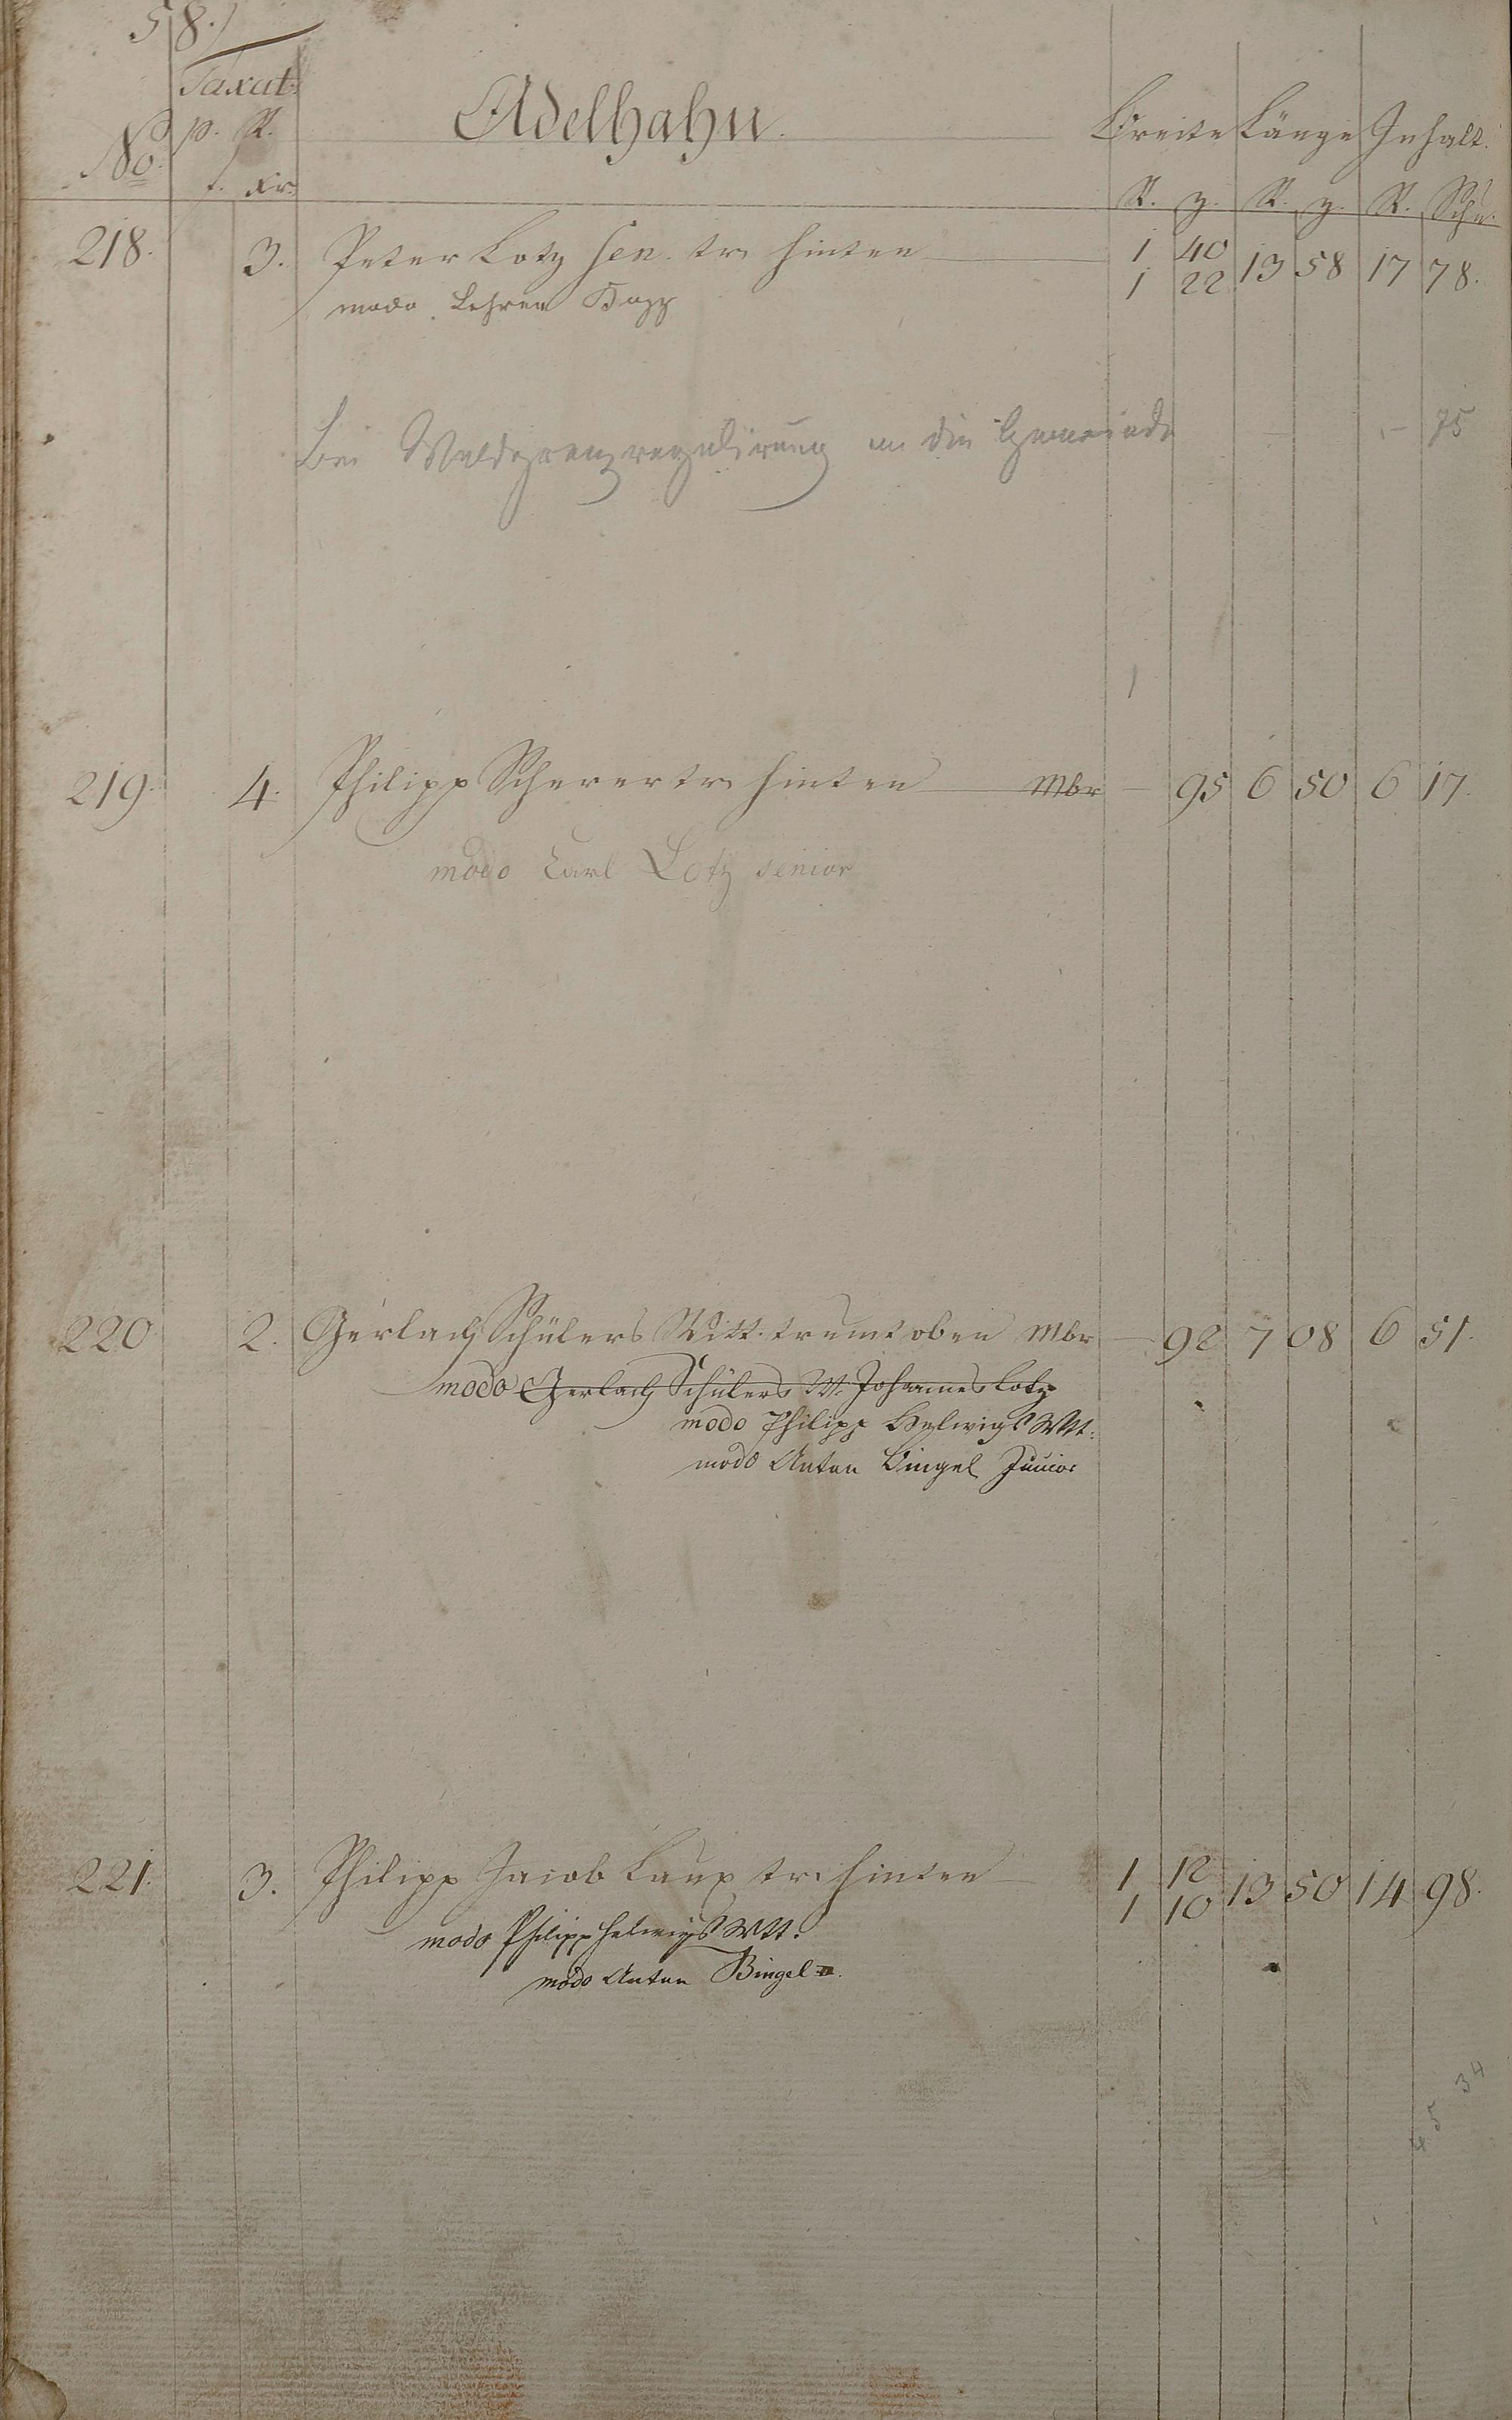 58.)
Taxat:
No. p. R. Adelhahn. Breite Länge Inhalt.
f. Xr. R. z. R. z. R. Sch.
218. 3. Peter Lotz sen. tr. hinten 1 40 13 58 17 78.
modo Lehrer 1 22
bei Waldgrenzregulirung an die Gemeinde – 75
219. 4. Philipp Scherer tr. hinten Mbr – 95 6 50 6 17.
modo Carl Lotz senior
220 2. Gerlach Schülers Witt. trumt oben Mbr – 92 7 08 6 51.
modo Gerlach Schülers W. Johannes Lotz
modo Philipp Helwigs Wtt:
modo Anton Bingel Junior
221. 3. Philipp Jacob Laux tr. hinten 1 12 13 50 14 98.
1 10
modo Philipp Helwigs Wtt:
modo Anton Bingel II.
45 34